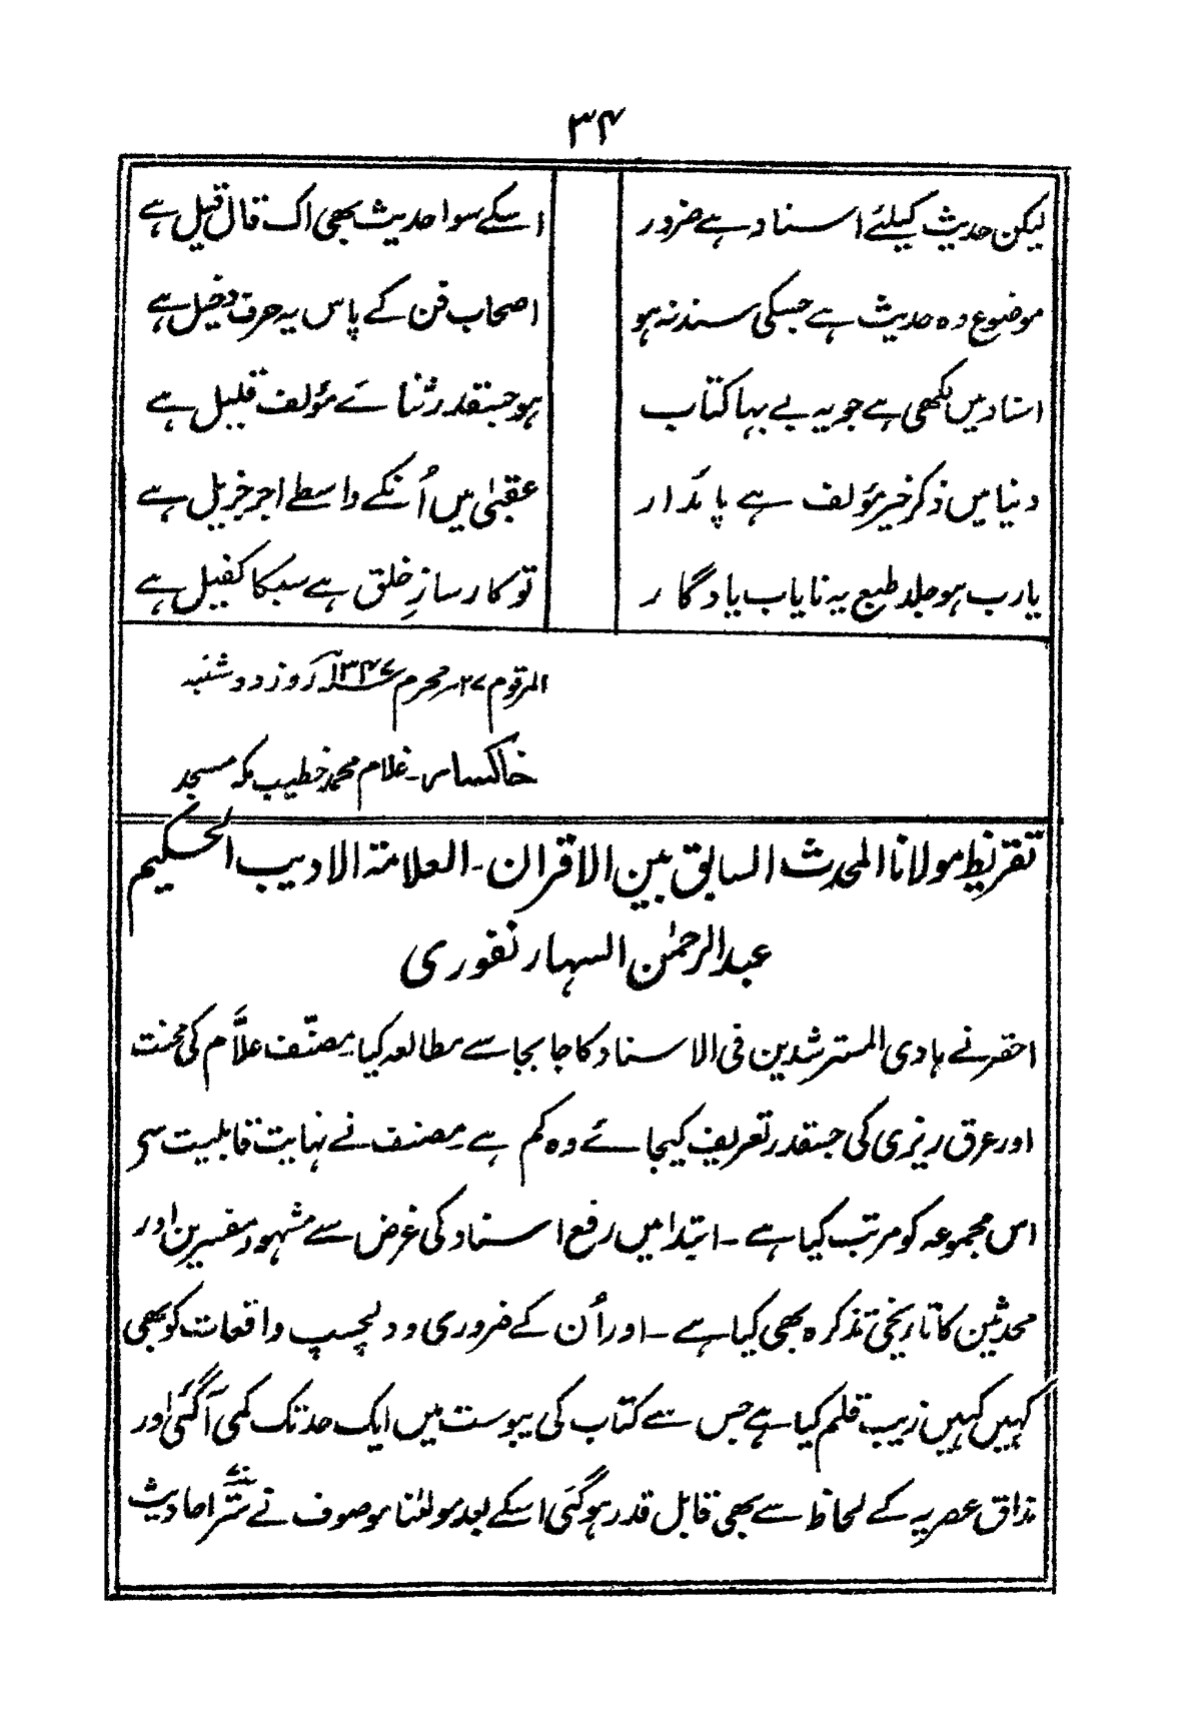 ۳۴
لیکن حدیث کیلئے اسناد ہے ضرور اسکے سوا حدیث بھی اک قال قیل ہے
موضوع وہ حدیث ہے جسکی سند نہ ہو اصحاب فن کے پاس یہ حرف دخیل ہے
اسناد میں لکھی ہے جو یہ بے بہا کتاب ہو جسقدر ثنائے مؤلف قلیل ہے
دنیا میں ذکر خیر مؤلف ہے پائدار عقبیٰ میں اُنکے واسطے اجر جزیل ہے
یارب ہو جلد طبع یہ نایاب یادگار تو کارسازِ خلق ہے سبکا کفیل ہے
المرقوم ۲۷ محرم ۱۳۴۷ روز دوشنبہ
خاکسار۔ غلام محمد خطیب مکہ مسجد
تقریظ مولانا المحدث السابق بین الاقران۔ العلامۃ الادیب الحکیم
عبدالرحمٰن السہارنفوری
احقر نے ہادی المسترشدین فی الاسناد کا جابجا سے مطالعہ کیا۔ مصنّف علاَّم کی محنت
اور عرق ریزی کی جسقدر تعریف کیجائے وہ کم ہے۔ مصنف نے نہایت قابلیت سی
اس مجموعہ کو مرتب کیا ہے۔ ابتدا میں رفع اسناد کی غرض سے مشہور مفسرین اور
محدثین کا تاریخی تذکرہ بھی کیا ہے۔ اور اُن کے ضروری و دلچسپ واقعات کو بھی
کہیں کہیں زیب قلم کیا ہے جس سے کتاب کی یبوست میں ایک حد تک کمی آگئی اور
مذاق عصریہ کے لحاظ سے بھی قابل قدر ہوگئی اسکے بعد مولٰنا موصوف نے ستّر احادیث